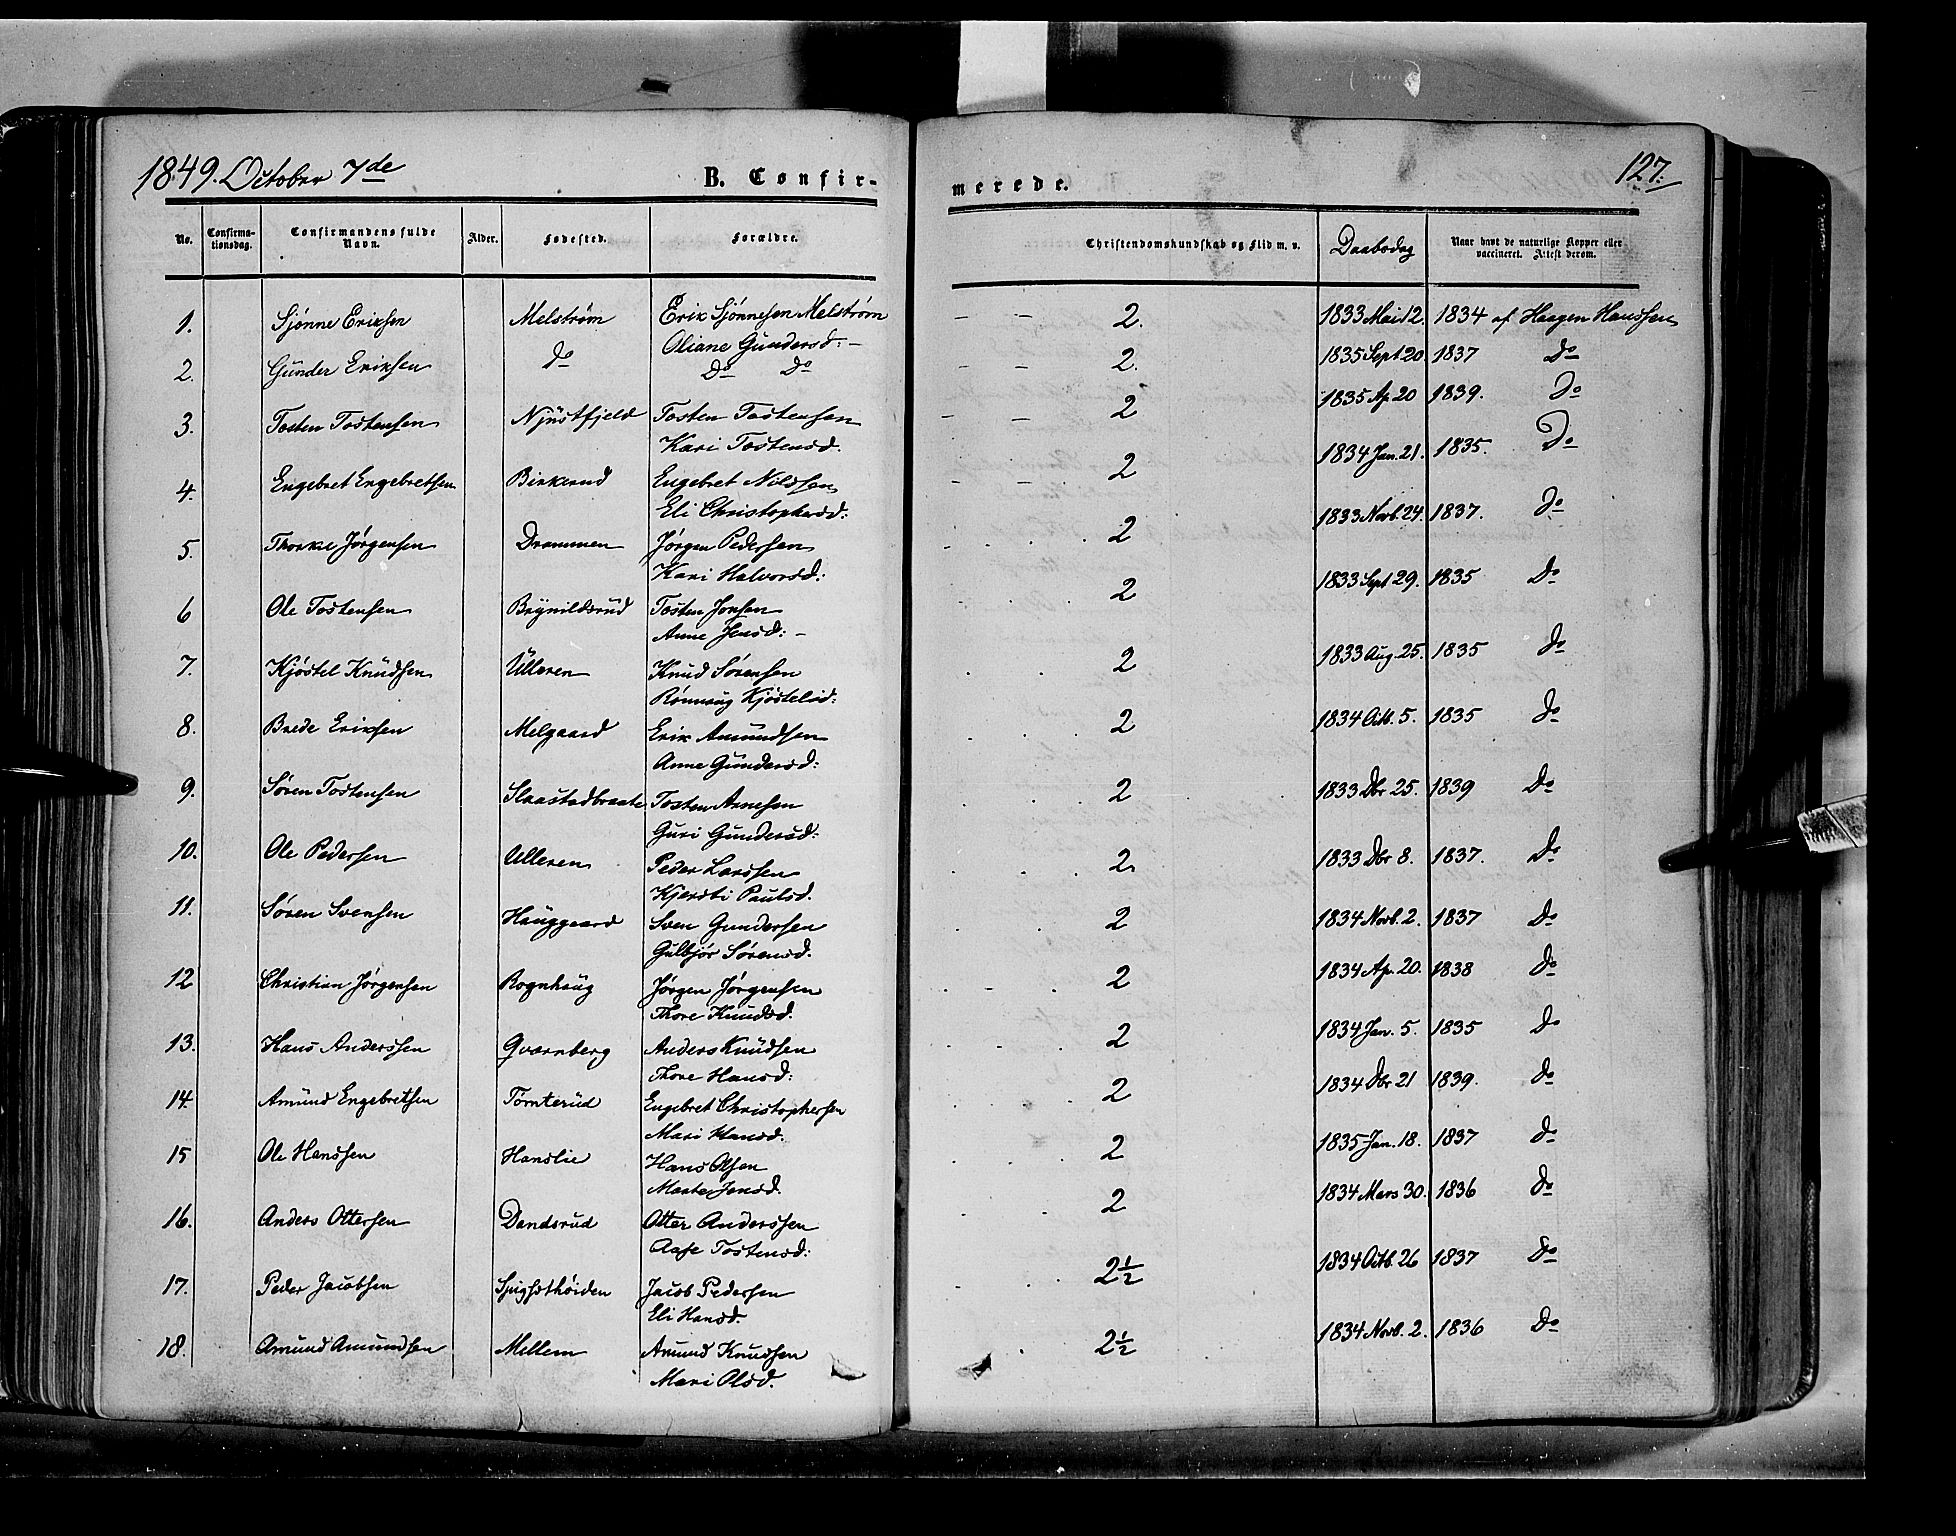 1849. October 7de
B. Confir-
merede.
127.
No. Confirmationsdag. Confirmandens fulde Navn. Alder. Fødested. Forældre. Christendomskundskab og Flid m. v. Daabsdag Naar havt de naturlige Kopper eller vaccineret. Attest derom.
1. Sjønne Eriksen Melstrøm Erik Sjønnesen Melstrøm - - 2. 1833 Mai 12. 1834 af Haagen Hanssen
Oliane Gundersd: -
2. Gunder Eriksen Do Do Do - - 2. 1835 Sept 20. 1837 Do
3. Tosten Tostensen Njüstfjeld Tosten Tostensen - - 2 1835 Ap 20 1839. Do
Kari Tostensd.
4. Engebret Engebretsen Birkerud Engebret Nilssen - - 2 1834 Jan. 21. 1835. Do
Eli Christophersd:
5. Thorke Jørgensen Drammen Jørgen Pedersen 2 1833 Novb. 24. 1837. Do
Kari Halvorsd:
6 Ole Tostensen Brynildsrud Tosten Jensen 2 1833 Sept 29. 1835 Do
Anne Jensd: -
7. Kjøstel Knüdsen Ulleren Knud Sørensen 2 1833 Aug. 25. 1835 Do
Rønnaug Kjøstelsd:
8. Brede Eriksen Melgaard Erik Amundsen 2 1834 Octb. 5. 1835 Do
Anne Gundersd:
9. Søren Tostensen Slaastadbraate Tosten Arnesen 2 1833 Dbr 25. 1839 Do
Guri Gundersd:
10. Ole Pedersen Ulleren Peder Larssen 2 1833 Dbr 8. 1837. Do
Kjersti Paulsd.
11. Søren Svensen Hauggaard Sven Gundersen 2 1834 Novb. 2. 1837 Do
Gulbjør Sørensd.
12 Christian Jørgensen Rognhaug Jørgen Jørgensen 2 1834 Ap. 20. 1838 Do
Thore Knudsd.
13. Hans Anderssen Qvernberg Anders Knüdsen 2 1834 Jan. 5. 1835 Do
Thore Hansd:
14. Amünd Engebretsen Tørnterüd Engebret Christophersen 2 1834 Dbr 21 1839. Do
Mari Hansd.
15 Ole Hanssen Hanslie Hans Olsen 2 1835 Jan. 18. 1837 Do
Marte Jensd.
16. Anders Ottersen Dandsrud Otter Anderssen 2 1834 Mars 30. 1836 Do
Aase Tostensd:
17. Peder Jacobsen Jacob Pedersen 2½ 1834 Octb. 26 1837 Do
Eli Hansd.
18. Amund Amundsen Mellem Amund Knudsen 2½ 1834 Novb. 2. 1836 Do
Mari Olsd.